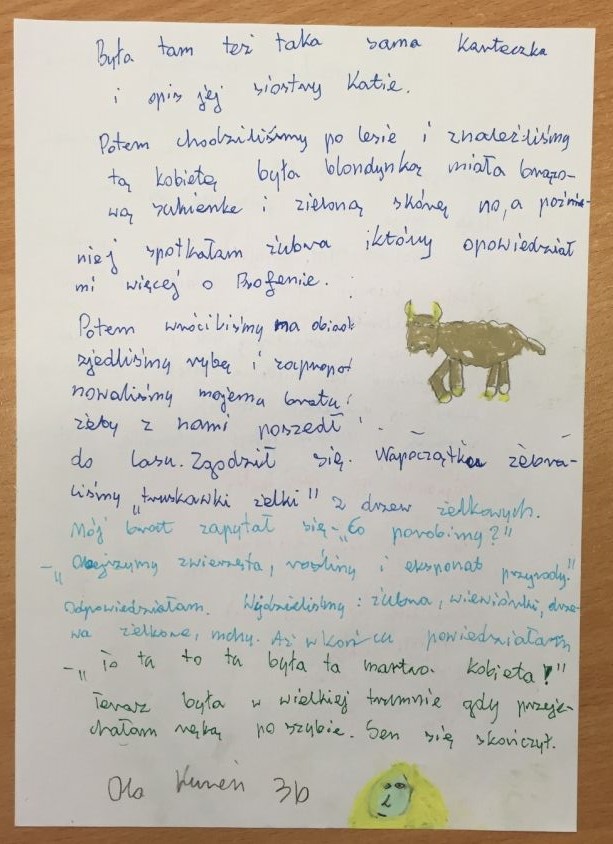 Była tam też taka sama karteczka
i opis jej siostry Katie.
Potem chodziliśmy po lesie i znaleźliśmy
tą kobietę była blondynką miała brązo-
wą sukienke i zieloną skórę no, a poźnie-
niej spotkałam żubra który opowiedział
mi więcej o Profenie.
Potem wróciliśmy na obiad
zjedliśmy rybę i zapropo
nowaliśmy mojemu bratu
żeby z nami poszedł
do lasu. Zgodził się. Napoczątku zebra-
liśmy "truskawki żelki" z drzew żelkowych.
Mój brat zapytał się - "Co porobimy?"
-"Obejrzymy zwierzęta, rośliny i eksponat przyrody."
Odpowiedziałam. Widzieliśmy: żubra, wiewiórki, drze-
wa żelkowe, muchy. Aż w końcu powiedziałam
-"To ta to ta była ta martwa kobieta!"
Teraz była w wielkiej trumnie gdy przeje-
chałam ręką po szybie. Sen się skończył.
Ola 3b